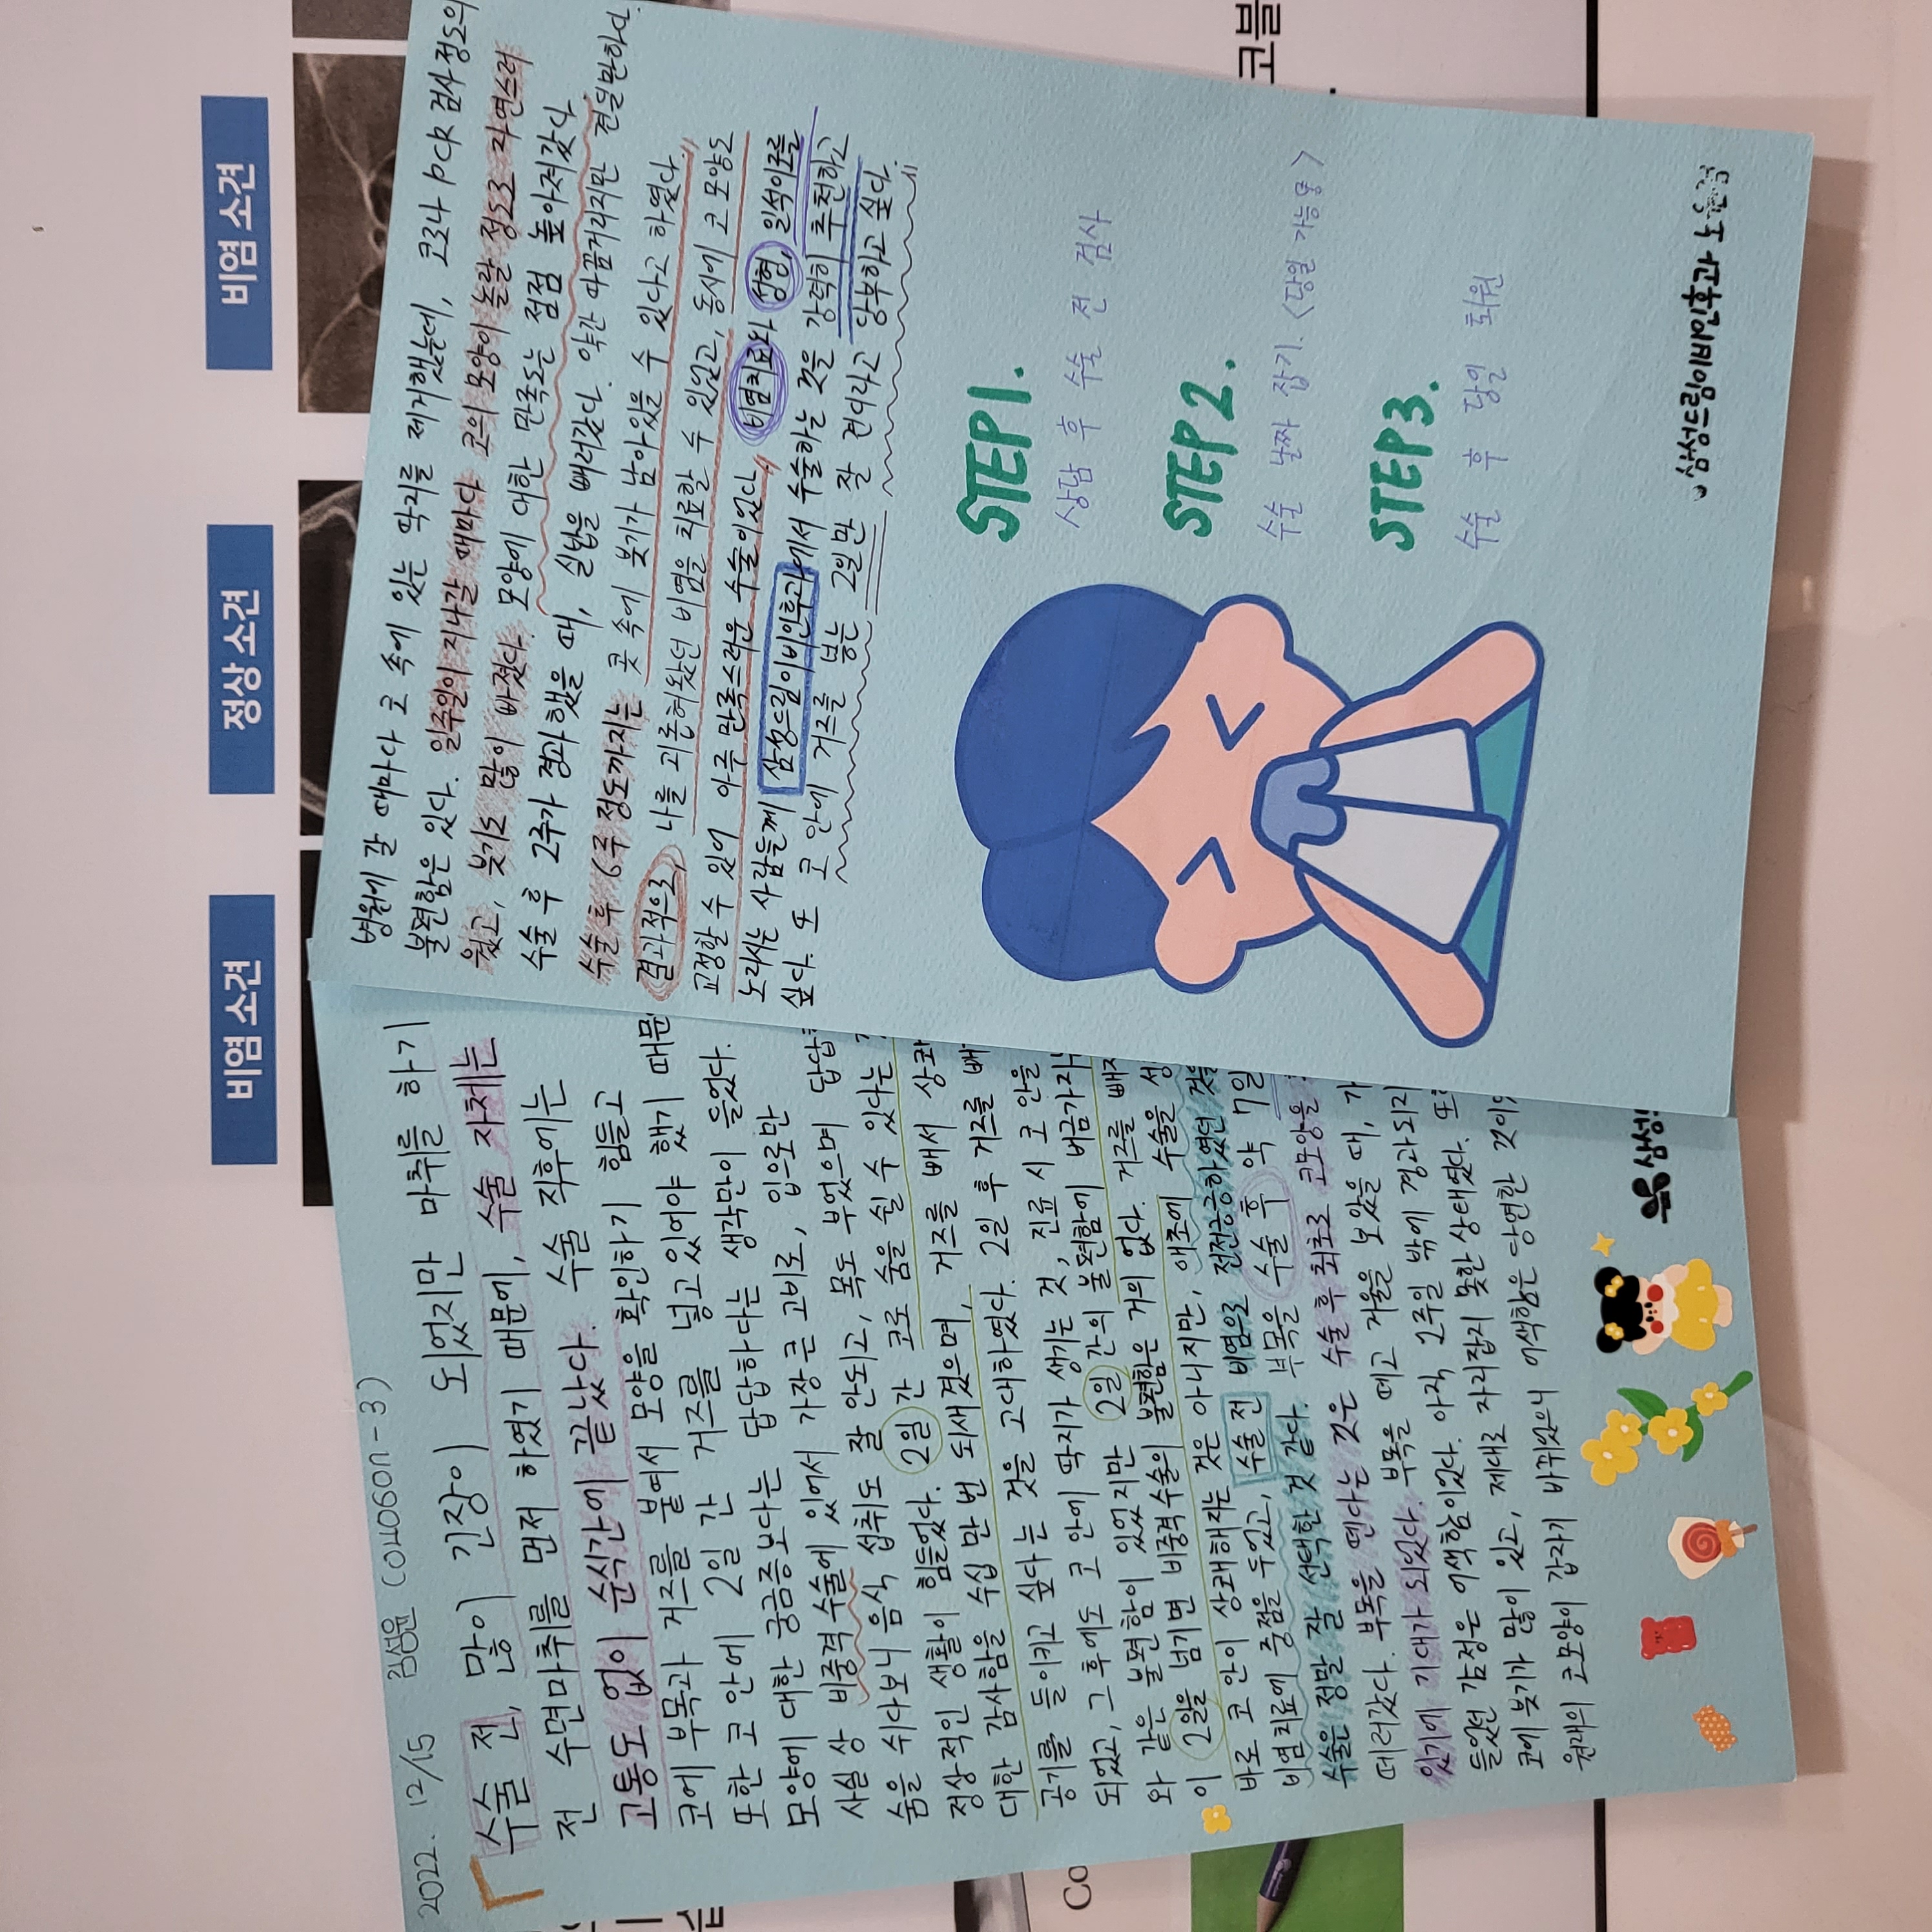 비염 소견
정상 소견
비염 소견
2022. 12/15 김성윤 (040601-3)
수술 전, 많이 긴장이 되었지만 마취를 하기
전 수면마취를 먼저 하였기 때문에, 수술 자체는
고통도 없이 순식간에 끝났다. 수술 직후에는
코에 부목과 거즈를 붙여서 모양을 확인하기 힘들고
또한 코 안에 2일 간 거즈를 넣고 있어야 했기 때문
모양에 대한 궁금증보다는 답답하다는 생각만이 들었다.
사실 상 비중격 수술에 있어서 가장 큰 고비로, 입으로만
숨을 쉬다보니 음식 섭취도 잘 안되고, 목도 부었으며 답답
정상적인 생활이 힘들었다. 2일 간 코로 숨을 쉴 수 있다는
대한 감사함을 수십 만 번 되새겼으며, 거즈를 빼서 상쾌
공기를 들이키고 싶다는 것을 고대하였다. 2일 후 거즈를 빼
되었고, 그 후에도 코 안에 딱지가 생기는 것, 진료 시 코 안을
와 같은 불편함이 있었지만 2일 간의 불편함에 버금가지는
이 2일을 넘기면 비중격 수술의 불편함은 거의 없다. 거즈를 빼자
바로 코 안이 상쾌해지는 것은 아니지만, 애초에 수술을 성
비염치료에 중점을 두었고, 수술 전 비염으로 전전긍긍하였던 것을
수술은 정말 잘 선택한 것 같다. 부목을 수술 후 약 7일
떼러갔다. 부목을 뗀다는 것은 수술 후 최초로 코모양을
있기에 기대가 되었다. 부목을 떼고 거울을 보았을 때, 가
들었던 감정은 어색함이었다. 아직 1주일 밖에 경과되지
코에 붓기가 많이 있고, 제대로 자리잡지 못한 상태였다. 또
원래의 코모양이 갑자기 바뀌었으니 어색함은 당연한 것이
삼성
병원에 갈 때마다 코 속에 있는 딱지를 제거했는데, 코로나 PCR 검사정도의
불편함은 있다. 일주일이 지나갈 때마다 코의 모양이 놀랄 정도로 자연스러
웠고, 붓기도 많이 빠졌다. 모양에 대한 만족도는 점점 높아져갔다.
수술 후 2주가 경과했을 때, 실밥을 빼러갔다. 약간 따끔거리지만 견딜만하다.
수술 후 6주 정도까지는 콧 속에 붓기가 남아있을 수 있다고 하였다.
결과적으로, 나를 괴롭혀왔던 비염을 치료할 수 있었고, 동시에 코 모양도
교정할 수 있어 아주 만족스러운 수술이었다. 비염치료와 성형, 일석이조를
노리시는 사람들께 삼성드림이비인후과에서 수술하는 것을 강력히 추천하고
싶다. 또 코 안에 거즈를 넣는 2일만 잘 견디라고 당부하고 싶다.
STEP1.
상담 후 수술 전 검사
STEP2.
수술 날짜 잡기. <당일 가능>
STEP3.
수술 후 당일 퇴원
삼성드림이비인후과 노
Co
코블